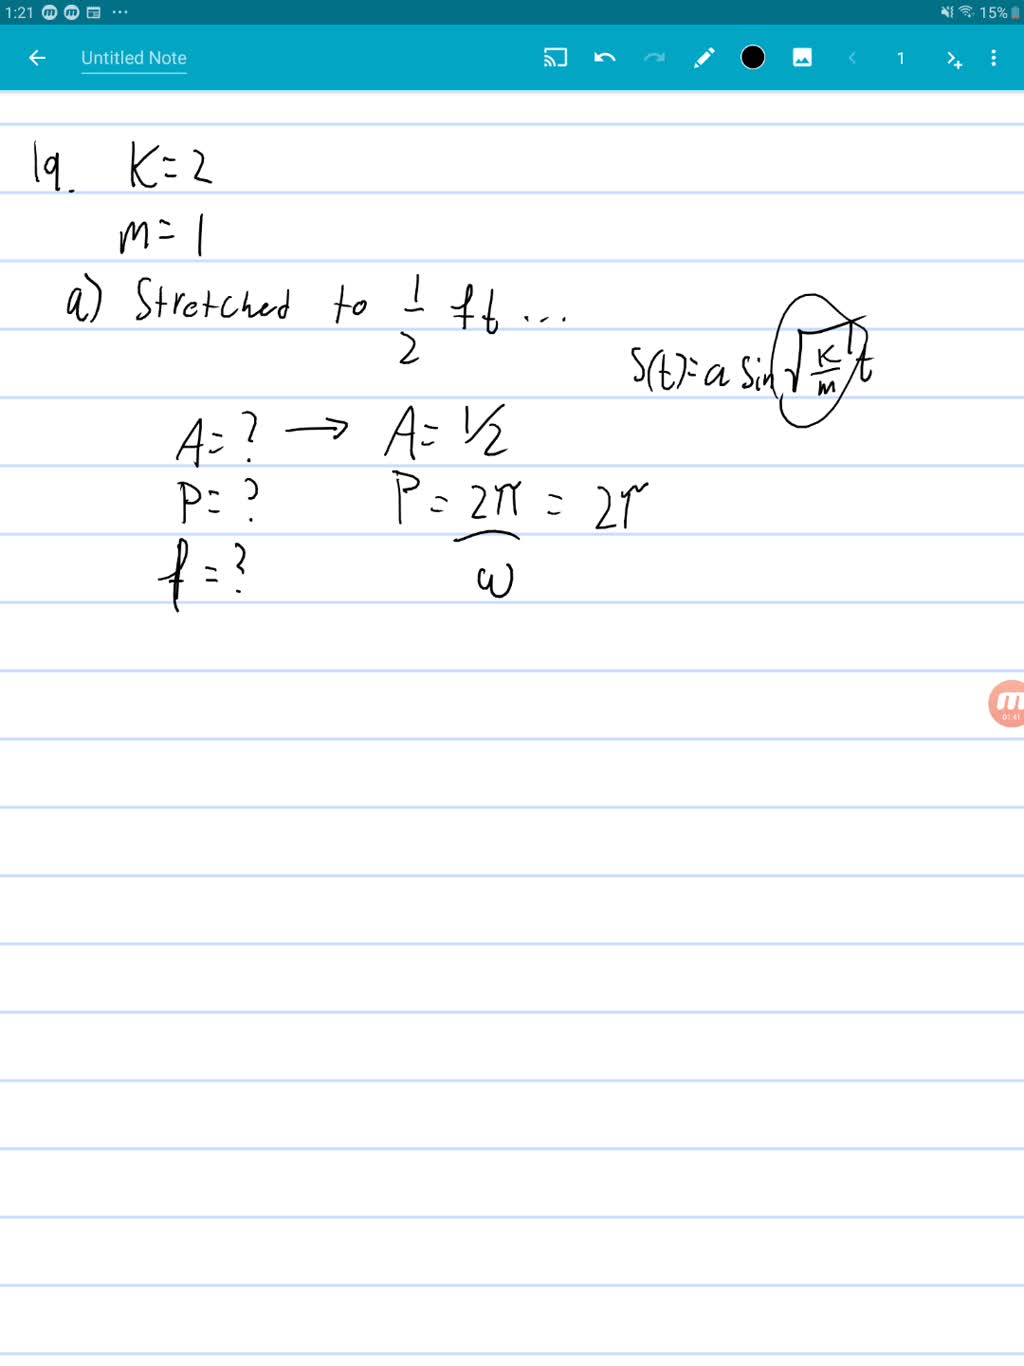 1:21 15%
Untitled Note 1
19. K=2
m=1
a) Stretched to 1/2 ft ...
S(t)=a sin √(K/m) t
A=? → A=1/2
P=? P=2π/ω = 2π
f=?
m
01:41